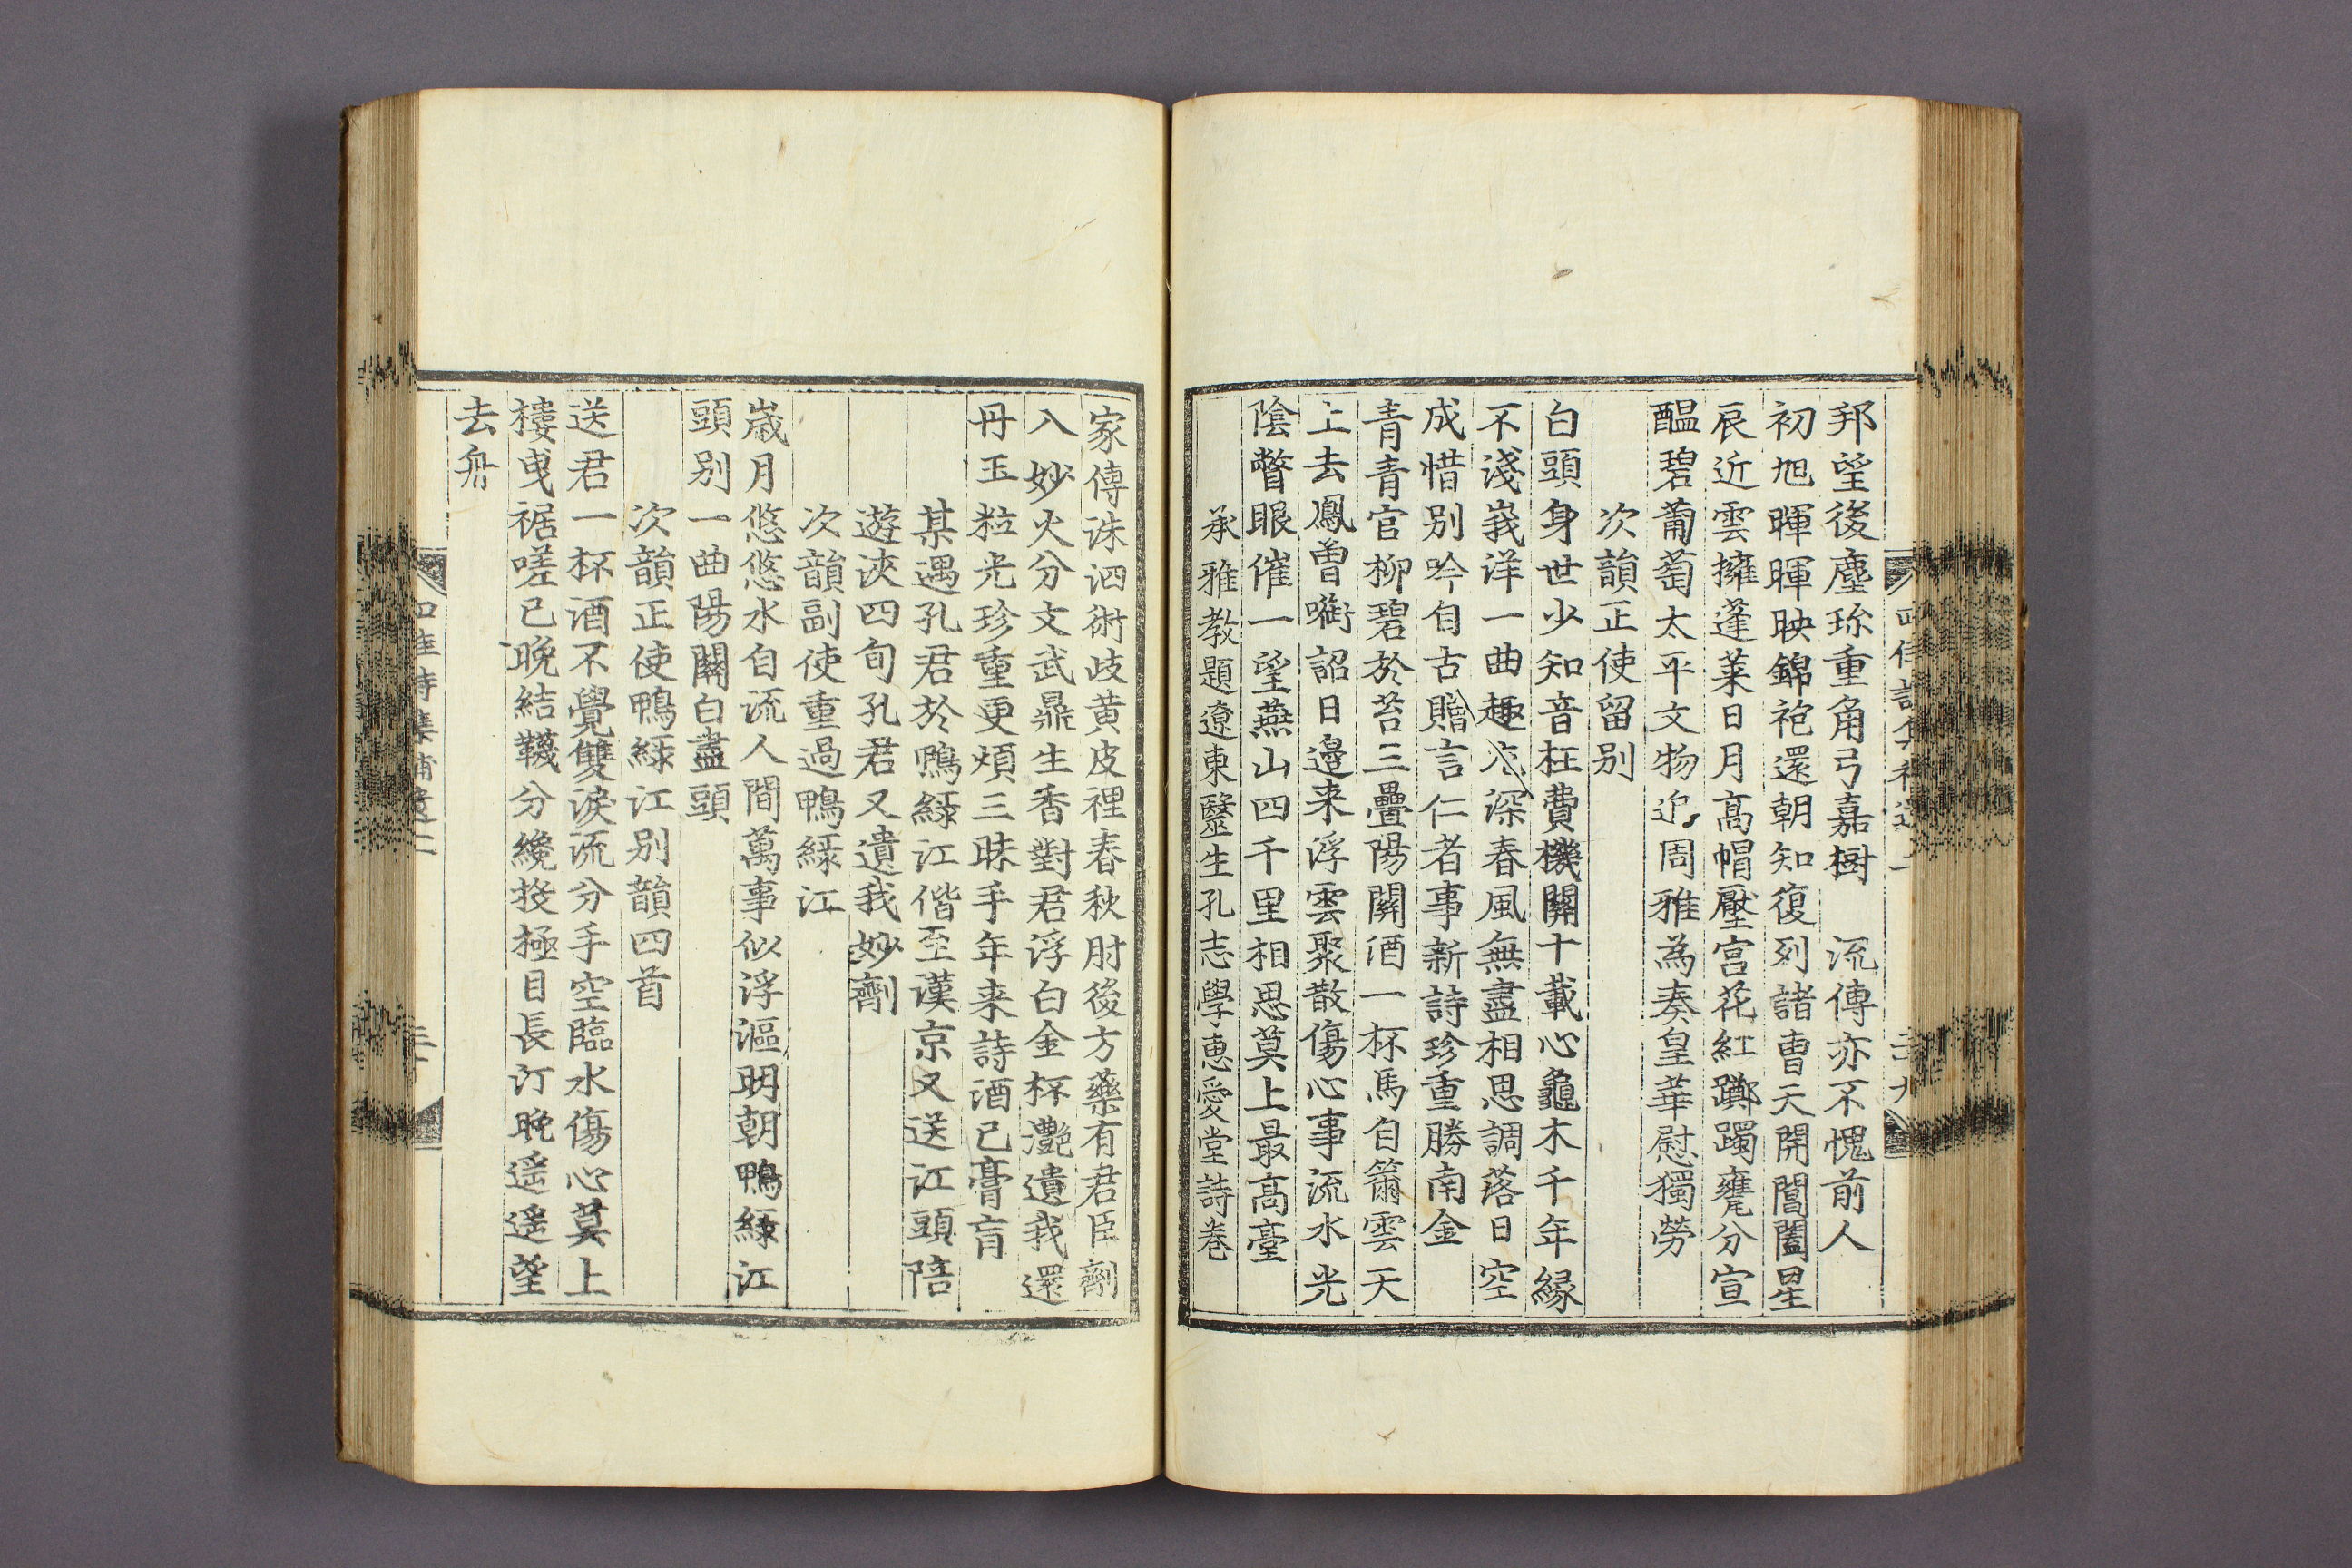 邦望後塵珎重角弓嘉樹　流傳亦不愧前人
初旭暉暉映錦袍還朝知復列諸曹天開閶闔星
辰近雲擁蓬莱日月髙帽壓宫花紅躑躅甕分宣
醖碧葡萄太平文物追周雅為奏皇華慰獨勞
次韻正使留别
白頭身世少知音枉費機關十載心龜木千年緣
不淺峩洋一曲趣深春風無盡相思調落日空
成惜别吟自古贈言仁者事新詩珍重勝南金
青青官柳碧於苔三疊陽關酒一杯馬首雲天
上去鳳曽嘲詔日邉来浮雲聚散傷心事流水光
陰瞥眼催一望燕山四千里相思莫上最髙臺
承雅教題遼東醫生孔志學恵愛堂詩巻
家傳洙泗術歧黄皮裡春秋肘後方藥有君臣劑
入妙火分文武鼎生香對君浮白金杯灔遺我還
丹玉粒光珍重更煩三昧手年来詩酒已膏肓
某遇孔君於鴨緑江偕至漢京又送江頭陪
遊浹四旬孔君又遺我妙劑
次韻副使重過鴨緑江
歳月悠悠水自流人間萬事似浮漚明朝鴨緑江
頭别一曲陽關白盡頭
次韻正使鴨緑江别韻四首
送君一杯酒不覺雙淚流分手空臨水傷心莫上
樓曵裾嗟已晚結襪分纔投極目長汀晚遥遥望
去舟
四佳詩集補遺二